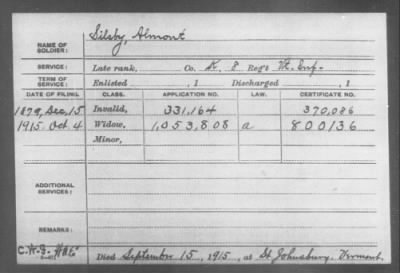 Silsby, Almont
NAME OF SOLDIER:
SERVICE: Late rank, Co. K. 8 Reg't Vt. Inf.
TERM OF SERVICE: Enlisted , 1 Discharged , 1
DATE OF FILING. CLASS. APPLICATION NO. LAW. CERTIFICATE NO.
1879, Dec, 15 Invalid, 331,164 370,086
1915. Oct 4 Widow, 1,053,808 a 800136
Minor,
ADDITIONAL SERVICES:
REMARKS:
Died September 15, 1915, at St Johnsbury. Vermont.